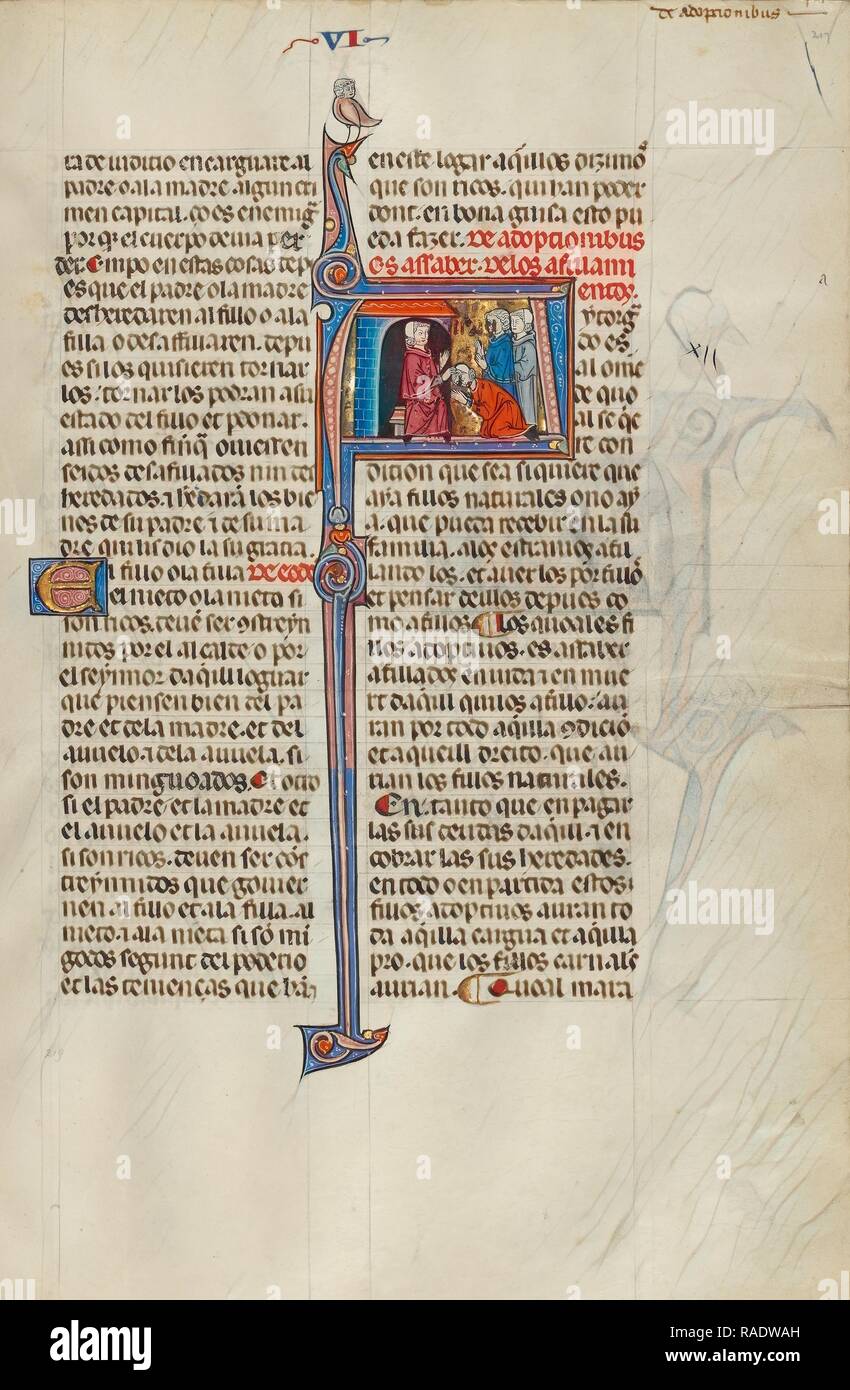 de adoptionibus
217
VI
ra de iudicio encarguare al
padre o a la madre algun cri
men capital. ço es enemigᵃ
por q̄ el cuerpo deuia per
der. Empero en estas cosas dep̄
es que el padre o la madre
desheredaren al fillo o a la
filla o desaffillaren. depu
es si los quisieren tornar
los. tornar los podran assi
estado del fillo et perdonar.
assi como si nūq̄ ouiessen
seidos desafillados nin des
heredados. ⁊ heredarā los bie
nes de su padre ⁊ de su ma
dre qui lis dio la su gracia.
El fillo o la filla De eodē
el nieto o la nieta si
son ricos. deuē ser 9streyn
nidos por el alcalde o por
el seynnor daq̄l logar
que piensen bien del pa
dre et de la madre. et del
auuelo ⁊ de la auuela. si
son minguados. Et otro
si el padre et la madre et
el auuelo et la auuela.
si son ricos. deuen ser cōs
treynnidos que gouier
nen al fillo et a la filla. al
nieto. ⁊ a la nieta si sō mī
goados segunt del poderio
et las tenienças que hā
en este logar aq̄llos dizimos
que son ricos. qui han poder
dont. en bona guisa esto pu
eda fazer. De adoptionibus
es assaber. de los afillami
entos.
ytorgᵃ
do es
al ome
de quo
al se q̄e
re con
dicion que sea si quiere que
aya fillos naturales o no ay
a. que pueda recebir en la su
familia. a los estranios afil
lando los. et auer los por fillos
et pensar deillos depues co
mo a fillos. Los quoales fi
llos adoptiuos. es assaber
afillados en uida ⁊ en mue
rt daquil qui los afillo. au
ran por todo aq̄lla 9dicio
et aqueill dreito. que au
rian los fillos naturales.
En tanto que en pagar
las sus deudas daqui ⁊ en
cobrar las sus heredades.
en todo o en partida estos
fillos adoptiuos auran to
da aq̄lla cargua et aq̄lla
pro. que los fillos carnales
aurian. Quoal mara
XII
a
219
alamy
Image ID: RADWAH
www.alamy.com